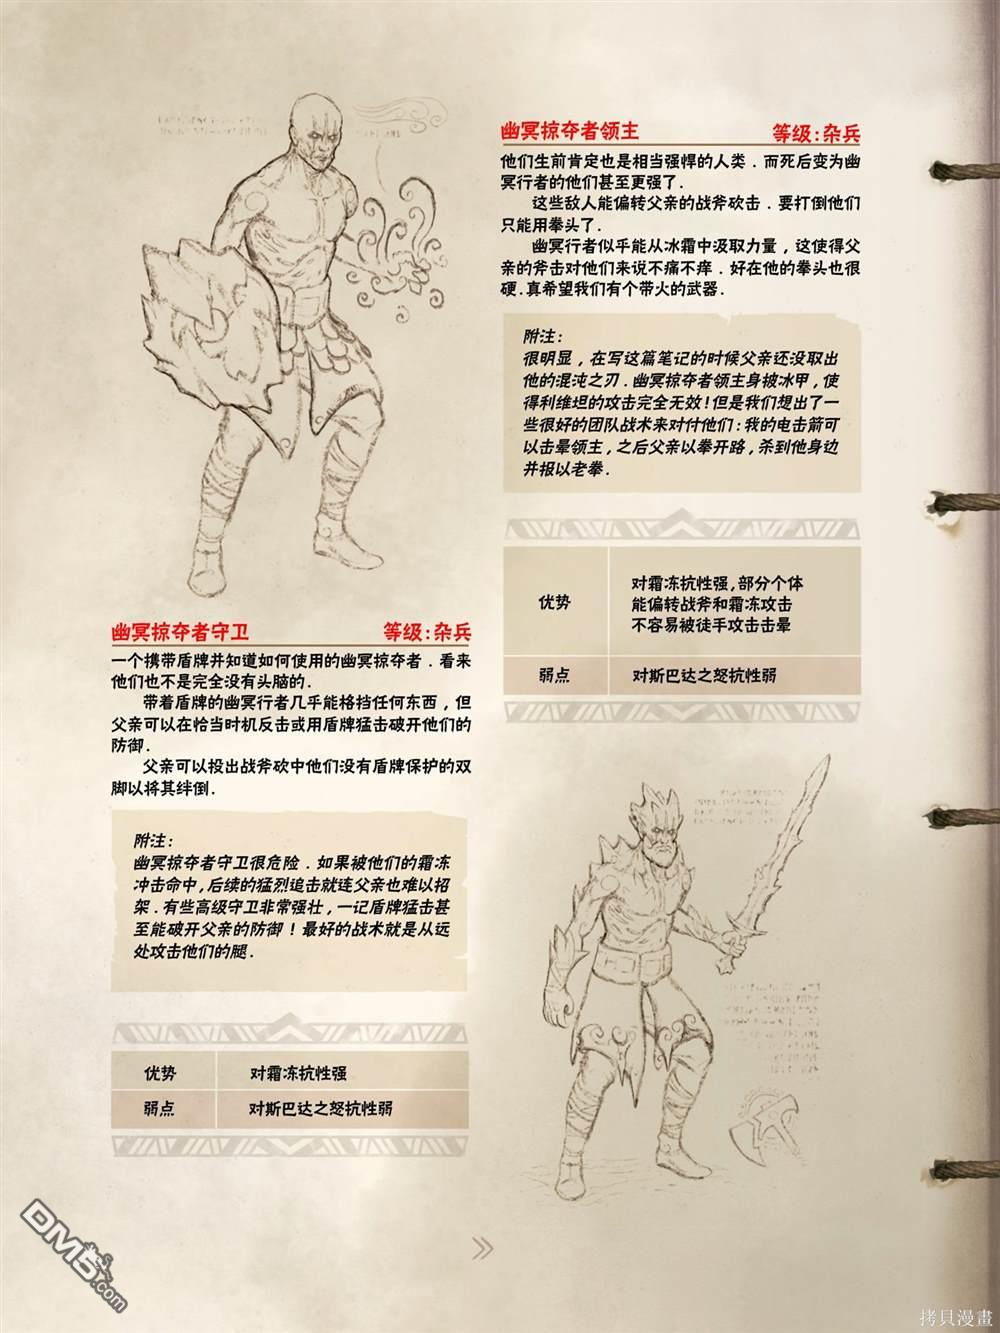 幽冥掠夺者领主 等级:杂兵
他们生前肯定也是相当强悍的人类.而死后变为幽
冥行者的他们甚至更强了.
这些敌人能偏转父亲的战斧砍击.要打倒他们
只能用拳头了.
幽冥行者似乎能从冰霜中汲取力量,这使得父
亲的斧击对他们来说不痛不痒.好在他的拳头也很
硬.真希望我们有个带火的武器.
附注:
很明显,在写这篇笔记的时候父亲还没取出
他的混沌之刃.幽冥掠夺者领主身披冰甲,使
得利维坦的攻击完全无效!但是我们想出了一
些很好的团队战术来对付他们:我的电击箭可
以击晕领主,之后父亲以拳开路,杀到他身边
并报以老拳.
优势 对霜冻抗性强,部分个体
能偏转战斧和霜冻攻击
不容易被徒手攻击击晕
弱点 对斯巴达之怒抗性弱
幽冥掠夺者守卫 等级:杂兵
一个携带盾牌并知道如何使用的幽冥掠夺者.看来
他们也不是完全没有头脑的.
带着盾牌的幽冥行者几乎能格挡任何东西,但
父亲可以在恰当时机反击或用盾牌猛击破开他们的
防御.
父亲可以投出战斧砍中他们没有盾牌保护的双
脚以将其绊倒.
附注:
幽冥掠夺者守卫很危险.如果被他们的霜冻
冲击命中,后续的猛烈追击就连父亲也难以招
架.有些高级守卫非常强壮,一记盾牌猛击甚
至能破开父亲的防御!最好的战术就是从远
处攻击他们的腿.
优势 对霜冻抗性强
弱点 对斯巴达之怒抗性弱
DM5.com
拷貝漫畫